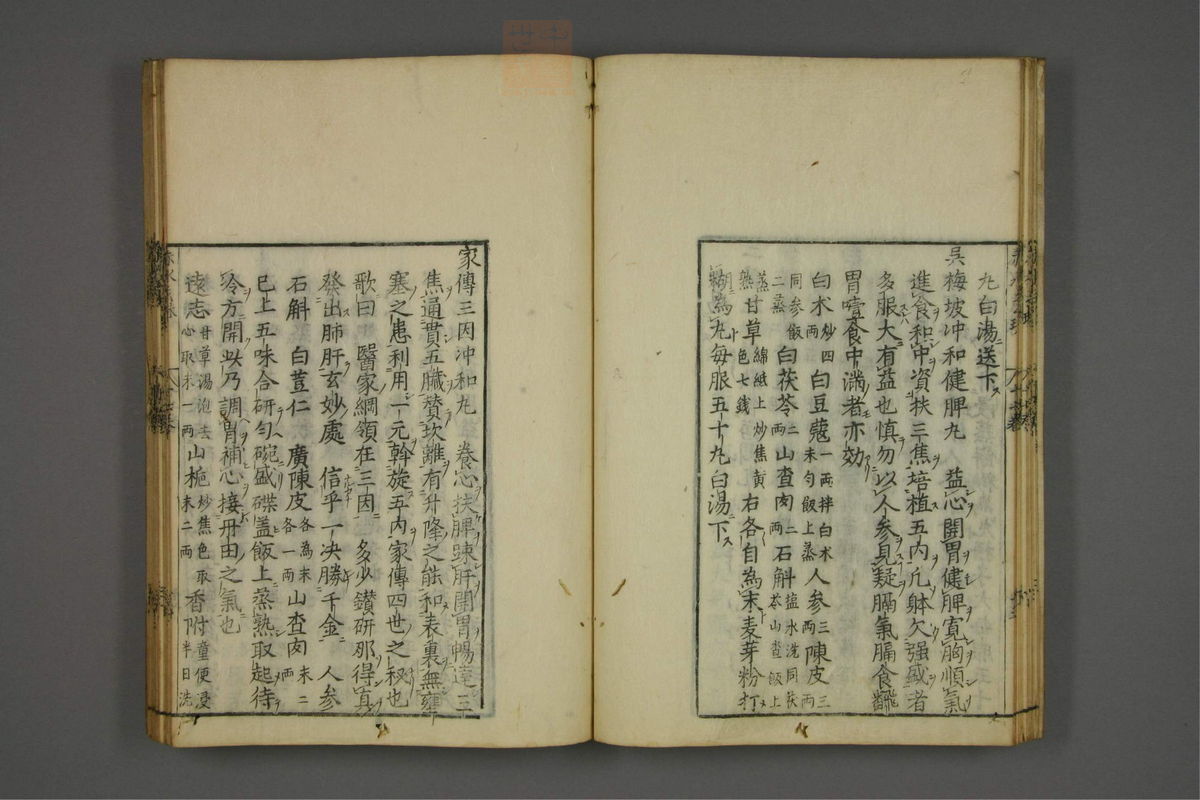 丸白湯送下ス
吳梅坡冲和健脾丸 益心開胃健脾寬胸順氣
進食和中資扶三焦培植五內凢躰欠强盛者
多服大有益也慎勿以人參見疑膈氣膈食飜
胃噎食中滿者亦効
白朮炒四兩白豆蔻一兩拌白朮末勻飯上蒸人參三兩陳皮三兩
同參飯二蒸白茯苓二兩山查肉二兩石斛塩水洗同茯苓山查飯上
蒸熟甘草綿紙上炒焦黃色七錢右各自為末麦芽粉打
糊為丸每服五十丸白湯下ス
家傳三因冲和丸 養心扶脾踈肝開胃暢達三
焦通貫五臟賛坎離有升降之能和表裏無壅
塞之患利用一元斡旋五內家傳四世之秘也
歌曰 醫家綱領在三因 多少鑚研那得眞
發出肺肝玄妙處 信乎一决勝千金 人參
石斛 白荳仁 廣陳皮各為末各一兩山查肉末二兩
已上五味合研勻碗盛碟盖飯上蒸熟取起待
冷方開此乃調胃補心接丹田之氣也
遠志甘草湯泡去心取末一兩山梔炒焦色取末二兩香附童便浸半日洗